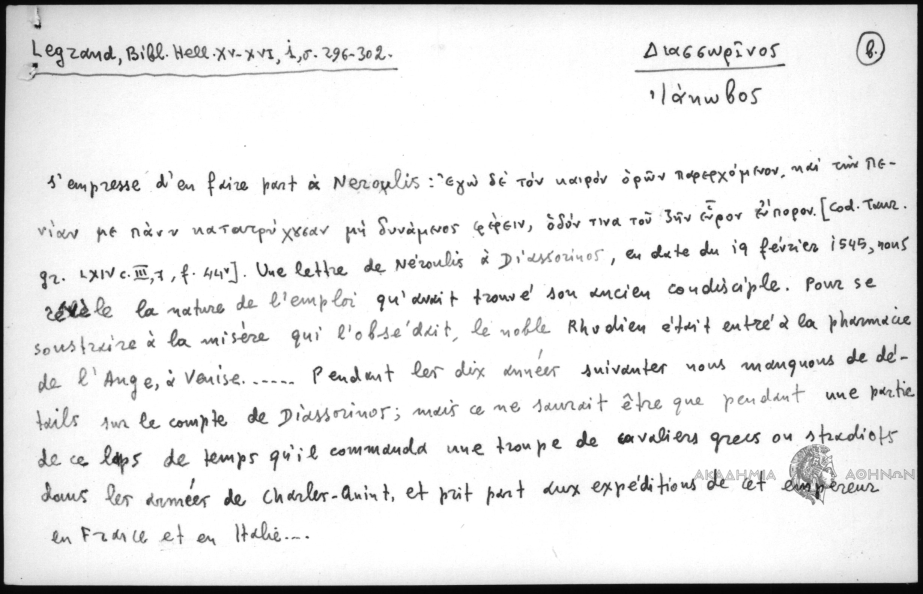 Legrand, Bibl. Hell. XV-XVI, i, σ. 296-302.
Διασσωρῖνος
β.
Ἰάκωβος
s'empresse d'en faire part à Neroulis: Ἐγὼ δὲ τὸν καιρὸν ὁρῶν παρερχόμενον, καὶ τὴν πε-
νίαν με πάνυ κατατρύχουσαν μὴ δυνάμενος φέρειν, ὁδόν τινα τοῦ ζῆν εὗρον εὔπορον. [Cod. Taur.
gr. LXIV c. III, 7, f. 44v]. Une lettre de Néroulis à Diassorinos, en date du 19 février 1545, nous
révèle la nature de l'emploi qu'avait trouvé son ancien condisciple. Pour se
soustraire à la misère qui l'obsédait, le noble Rhodien était entré à la pharmacie
de l'Ange, à Venise...... Pendant les dix années suivantes nous manquons de dé-
tails sur le compte de Diassorinos; mais ce ne saurait être que pendant une partie
de ce laps de temps qu'il commanda une troupe de cavaliers grecs ou stradiots
ΑΚΑΔΗΜΙΑ ΑΘΗΝΩΝ
dans les armées de Charles-Quint, et prit part aux expéditions de cet empereur
en France et en Italie....